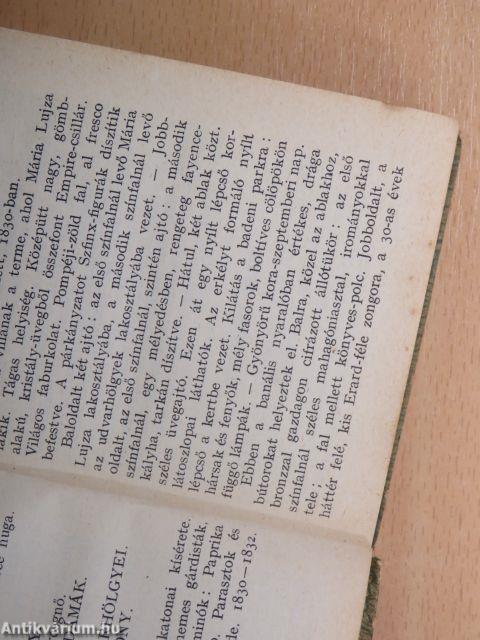 nuga.
gnő.
DÁMÁK.
HÖLGYEI.
NY.
katonai kísérete.
nemes gárdisták.
minók: Paprika
Parasztok és
de. 1830—1832.
lakik. villának a terme, ahol Mária Lujza
1830-ban.
Tágas helyiség. Középütt nagy, gömb-
alakú, kristály-üvegből összefont Empire-csillár.
Világos faburkolat. Pompéji-zöld fal, al fresco
befestve. A párkányzatot Szfinx-figurák díszítik
Baloldalt két ajtó: az első színfalnál levő Mária
Lujza lakosztályába, a második színfalnál levő
az udvarhölgyek lakosztályába vezet. — Jobb-
oldalt, az első színfalnál, szintén ajtó; a második
színfalnál, egy mélyedésben, rengeteg fayence-
kályha, tarkán díszítve. — Hátul, két ablak közt.
széles üvegajtó, Ezen át egy nyílt lépcső kor-
látoszlopai láthatók. Az erkélyt formáló nyílt
lépcső a kertbe vezet. Kilátás a badeni parkra:
hársak és fenyők, mély fasorok, boltíves cölöpökön
függő lámpák. — Gyönyörű kora-szeptemberi nap.
Ebben a banális nyaralóban értékes, drága
bútorokat helyeztek el. Balra, közel az ablakhoz,
bronzzal gazdagon cifrázott állótükör; az első
színfalnál széles mahagóniasztal, irományokkal
tele; a fal mellett könyves-polc. Jobboldalt, a
háttér felé, kis Erard-féle zongora, a 30-as évek
Antikvárium.hu